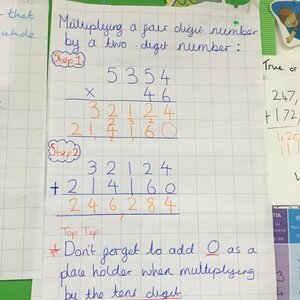 that
whole
Multiplying a four digit number
by a two digit number :
Step 1
5354
x 46
32124
2 3 2
214160
Step 2
32124
+ 214160
246,284
Top Tip
* Don't forget to add 0 as a
place holder when multiplying
by the tens digit.
True or
247,
+172,